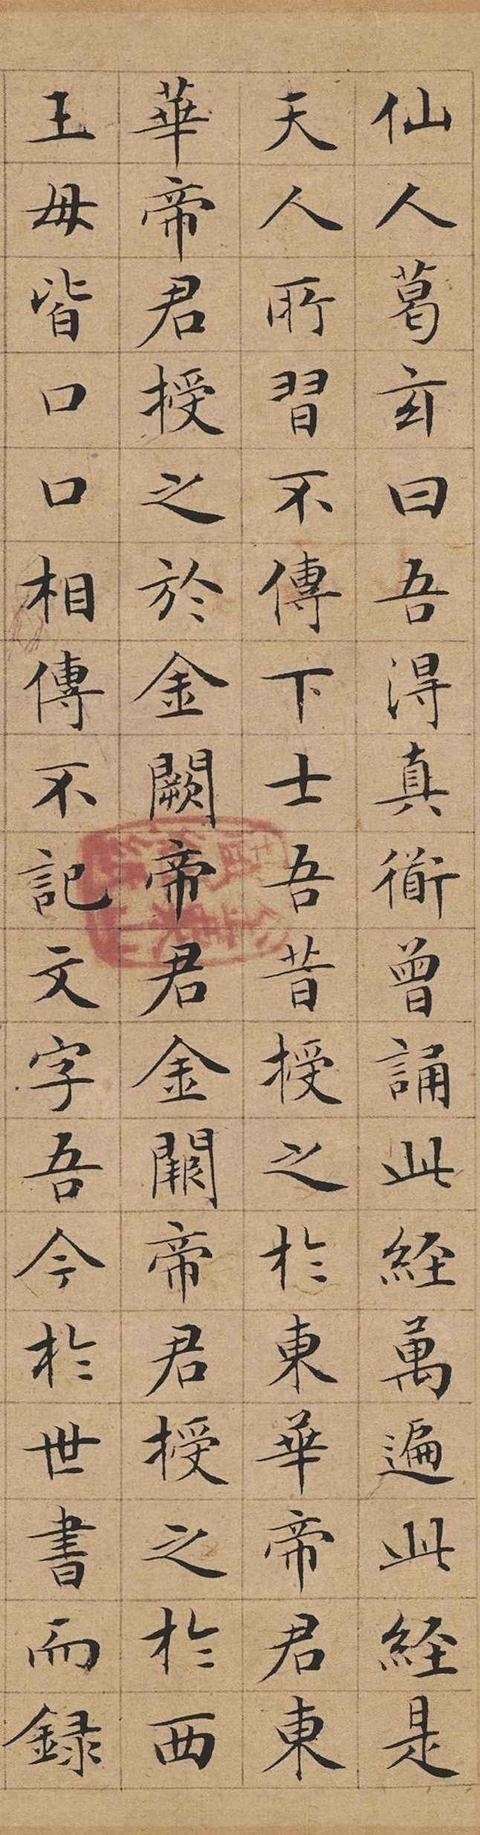 仙人葛玄曰吾淂真衜曽誦此経萬遍此経是
天人所習不傳下士吾昔授之扵東華帝君東
華帝君授之於金闕帝君金闕帝君授之扵西
王母皆口口相傳不記文字吾今扵世書而録